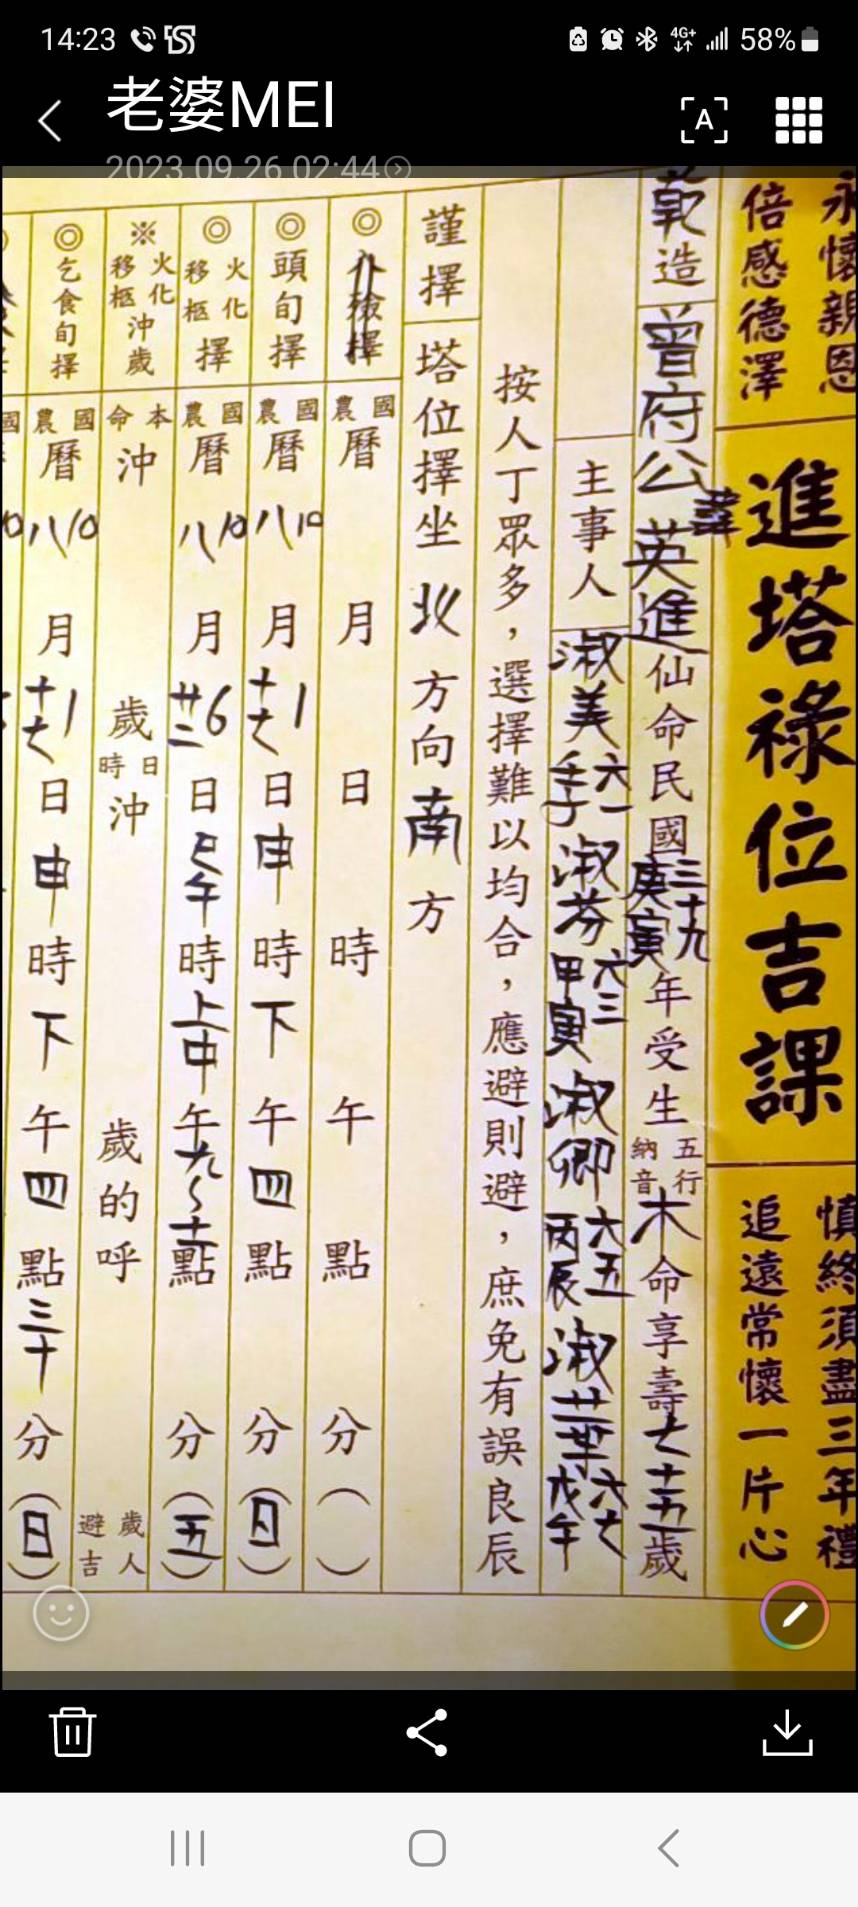 14:23
4G+
58%
老婆MEI
2023.09.26 02:44
A
永懷親恩
倍感德澤
進塔祿位吉課
慎終須盡三年禮
追遠常懷一片心
乾造
曾府公諱英進仙命民國三十九庚寅年受生五行納音木命享壽七十五歲
主事人
淑美六一壬子
淑芬六三甲寅
淑卿六五丙辰
淑葉六七戊午
按人丁眾多，選擇難以均合，應避則避，庶免有誤良辰
謹擇
塔位擇坐北方向南方
◎入殮擇
國農曆 月 日 時 午 點 分（ ）
◎頭旬擇
國農曆10八月1十七日申時下午四點 分（日）
◎火化移柩擇
國農曆10八月6廿二日巳午時上中午九~十二點 分（五）
※火化移柩沖歲
本命沖 歲
日時沖 歲的呼
歲人避吉
◎乞食旬擇
國農曆10八月1十七日申時下午四點三十分（日）
國